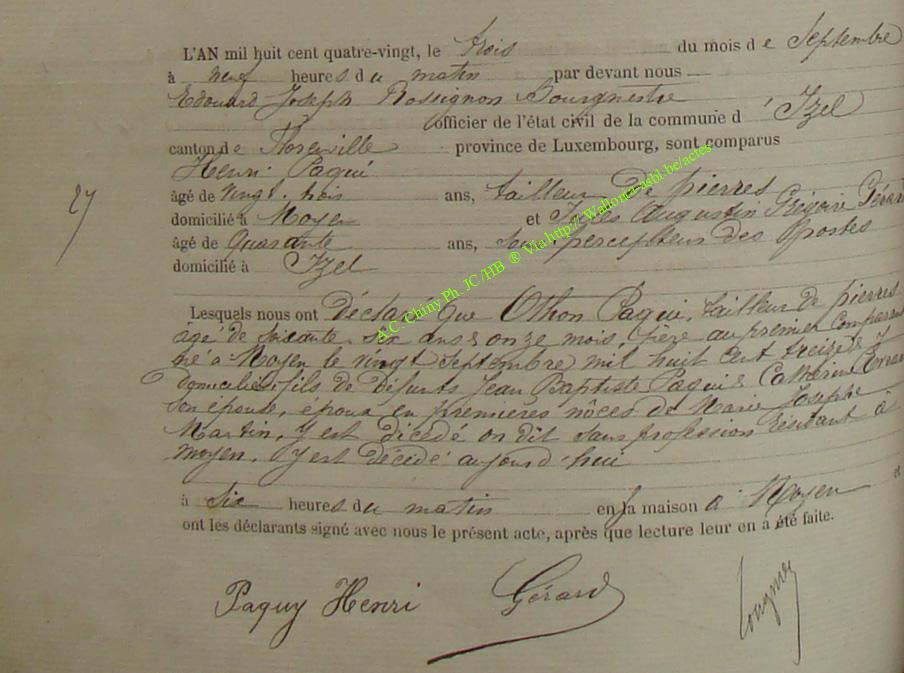 L'AN mil huit cent quatre-vingt, le trois du mois de Septembre
à neuf heures du matin par devant nous
Edouard Joseph Rossignon Bourgmestre
officier de l'état civil de la commune d'Izel
canton de Florenville province de Luxembourg, sont comparus
Henri Paqui
27
âgé de vingt-trois ans, tailleur de pierres
domicilié à Moyen et Jules Augustin Grégoire Gérard
âgé de quarante ans, sous percepteur des postes
domicilié à Izel
A.C. Chiny Ph. JC/HB ® Via http://Wallonia-asbl.be/actes
Lesquels nous ont Déclaré que Othon Paqui, tailleur de pierres
âgé de soixante-six ans & onze mois, père au premier Comparant
né à Moyen le vingt Septembre mil huit cent treize & y
domicilié, fils de défunts Jean Baptiste Paqui & Catherine
son épouse, époux en premières nôces de Marie Josephe
Martin, y est décédé on dit sans profession résidant à
moyen. y est décédé aujourd'hui
à six heures du matin en sa maison à Moyen et
ont les déclarants signé avec nous le présent acte, après que lecture leur en a été faite.
Paquy Henri Gérard